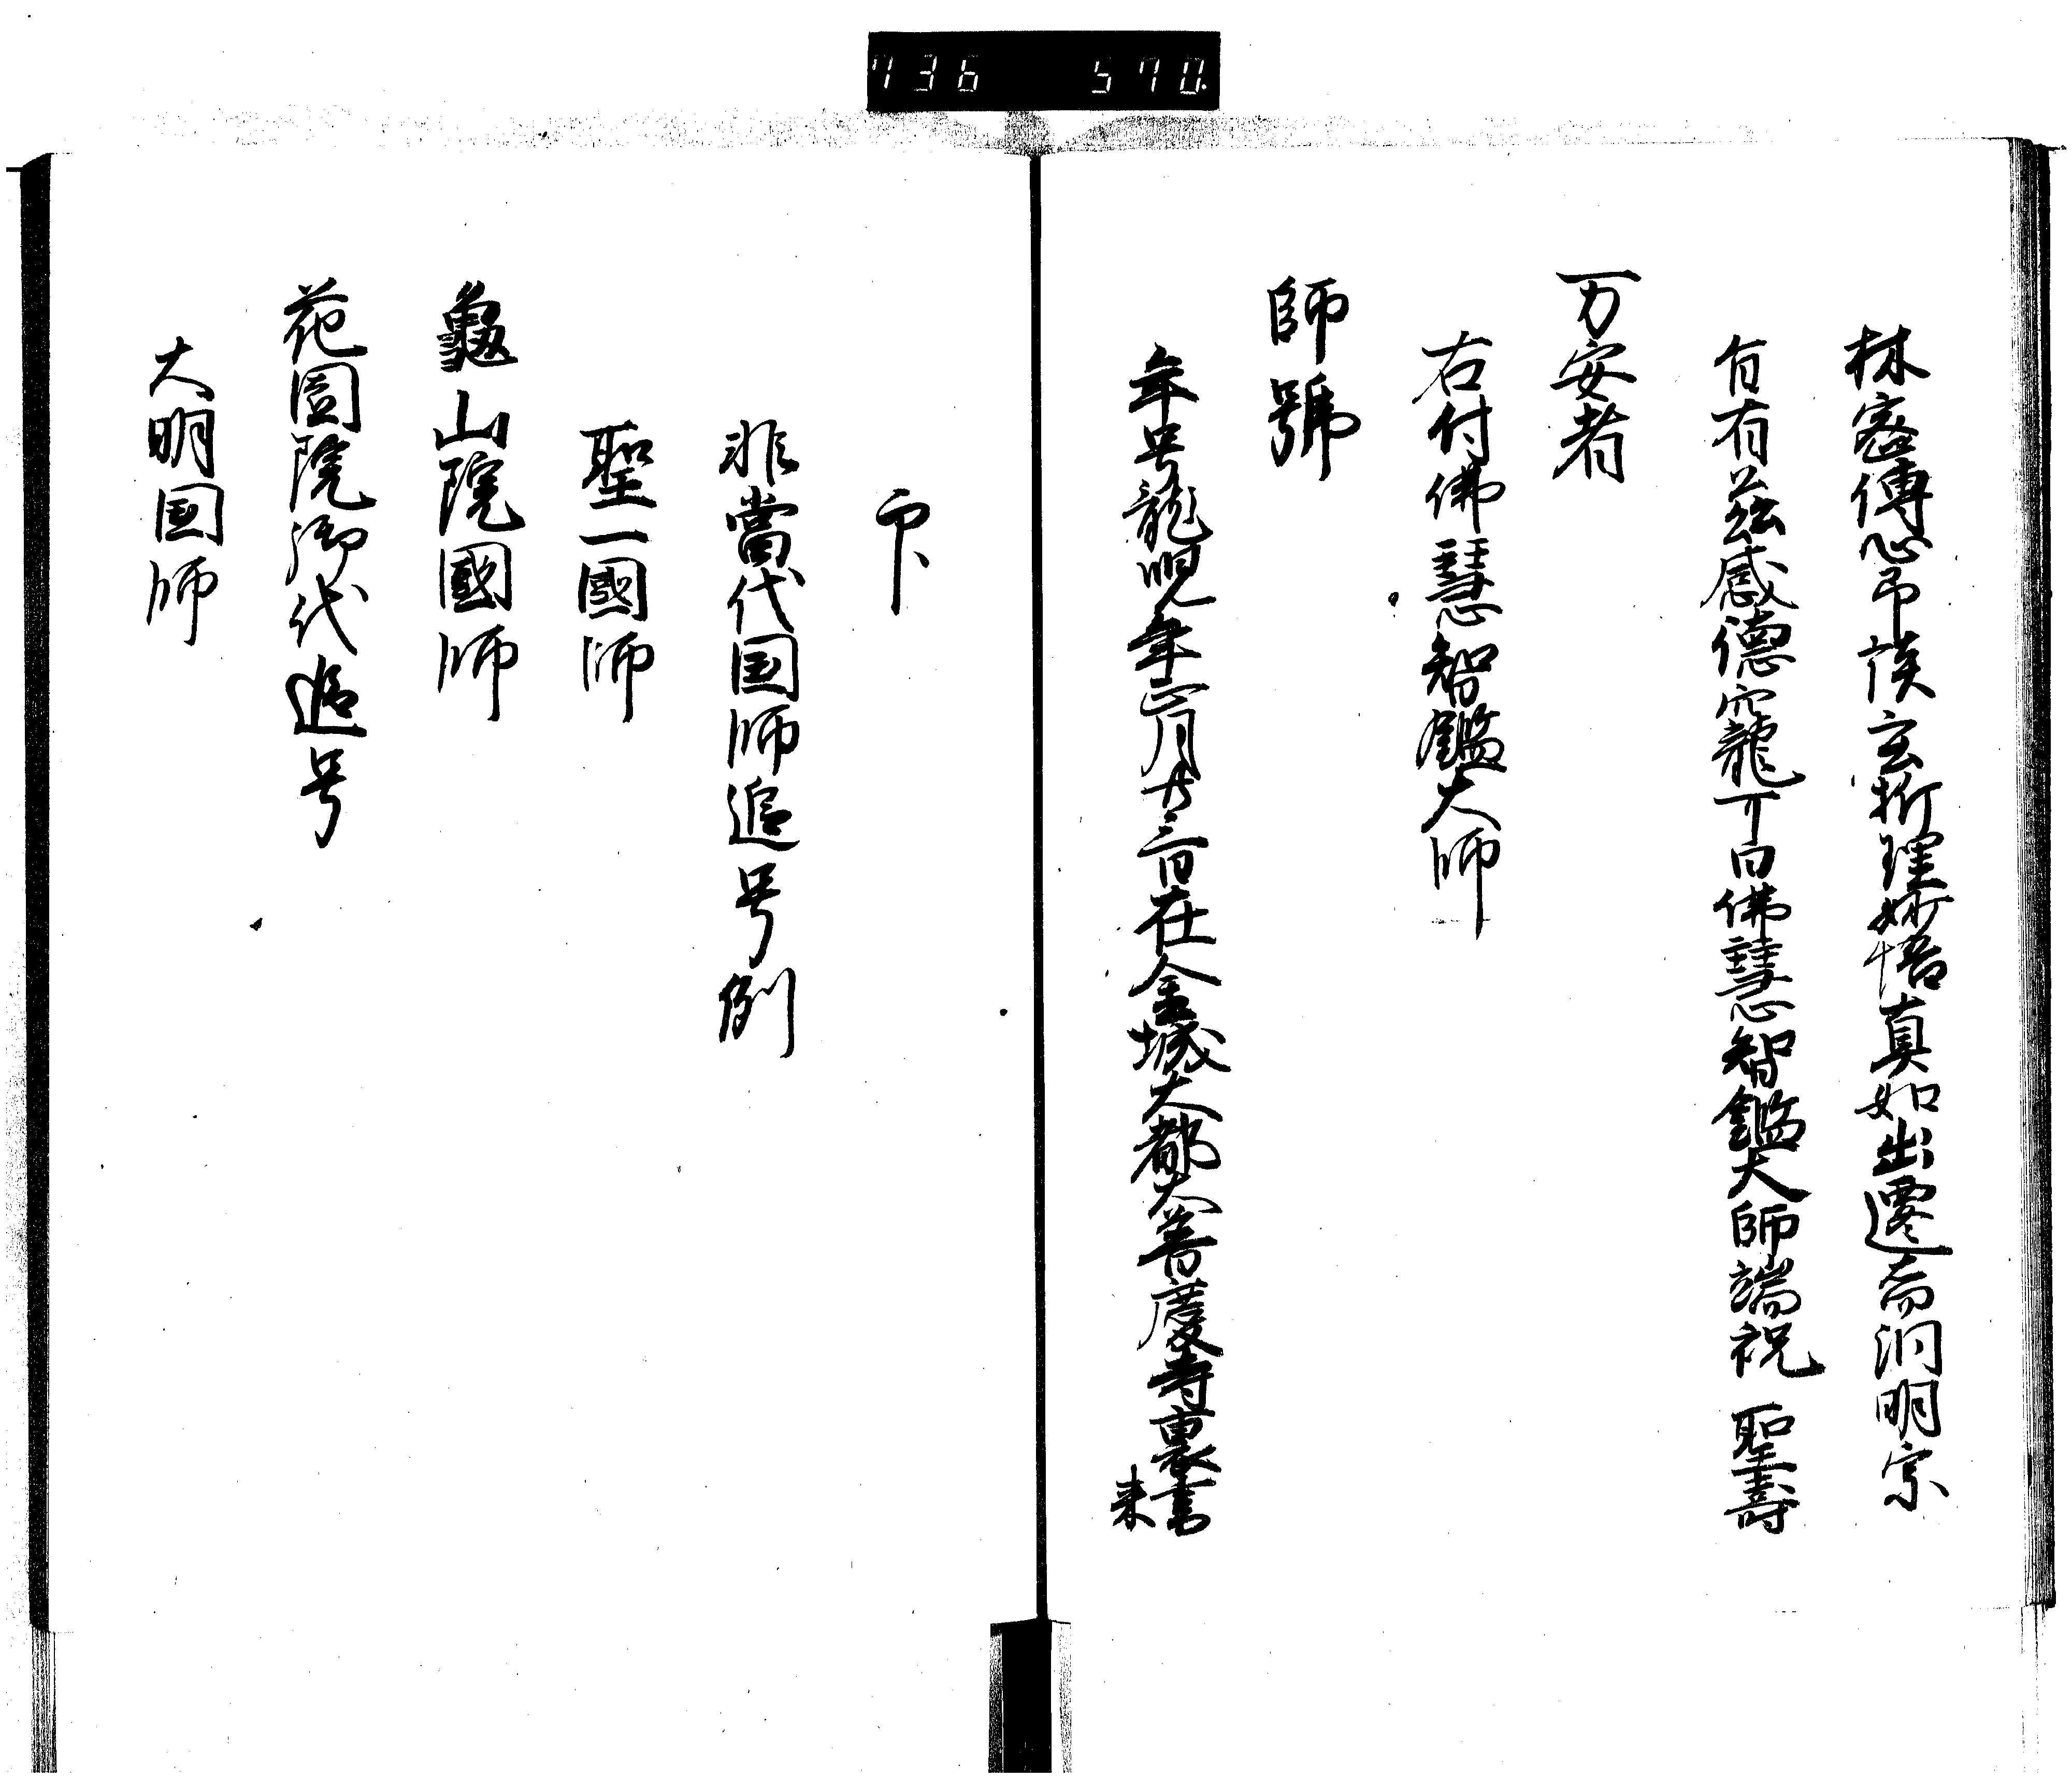 736 570
林密傳心印談玄析理妙悟真如出遷而洞明宗
旨有茲感德寵可曰佛慧智鑑大師端祝 聖壽
万安者
右付佛慧智鑑大師
師號
年号龍児年正月廿三日在金城大都大普慶寺裏書
来
印
非當代国師追号例
聖一國師
龜山院國師
花園院御代追号
大明国師